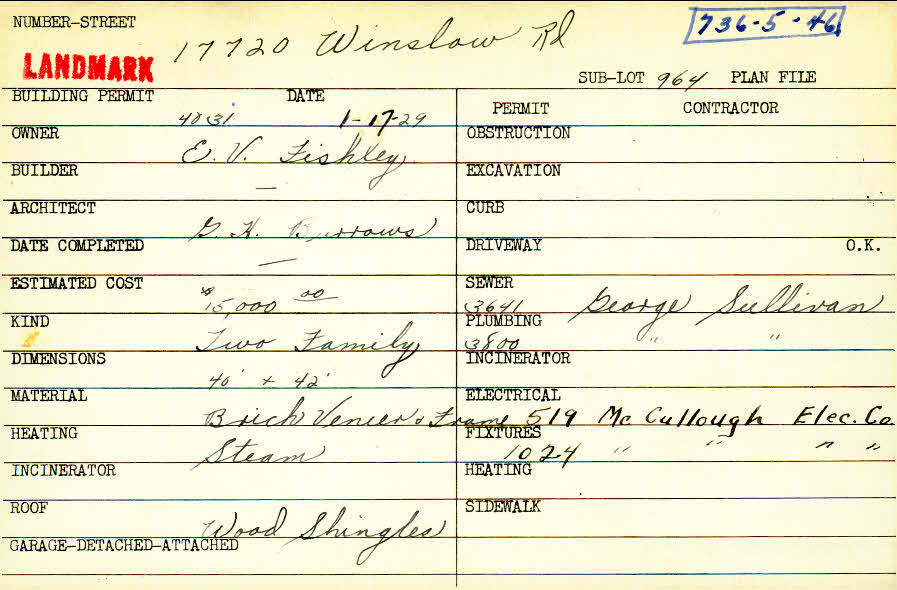 NUMBER-STREET
17720 Winslow Rd
736-5-46
LANDMARK
SUB-LOT 964 PLAN FILE
BUILDING PERMIT DATE
4031 1-17-29
OWNER
E. V. Fishley
BUILDER
—
ARCHITECT
G. H. Burrows
DATE COMPLETED
—
ESTIMATED COST
$15,000 00
KIND
Two Family
DIMENSIONS
40' + 42'
MATERIAL
Brick Veneer & Frame
HEATING
Steam
INCINERATOR
ROOF
Wood Shingles
GARAGE-DETACHED-ATTACHED
PERMIT CONTRACTOR
OBSTRUCTION
EXCAVATION
CURB
DRIVEWAY O.K.
SEWER
3641 George Sullivan
PLUMBING
3800 " "
INCINERATOR
ELECTRICAL
519 Mc Cullough Elec. Co.
FIXTURES
1024 " " " "
HEATING
SIDEWALK